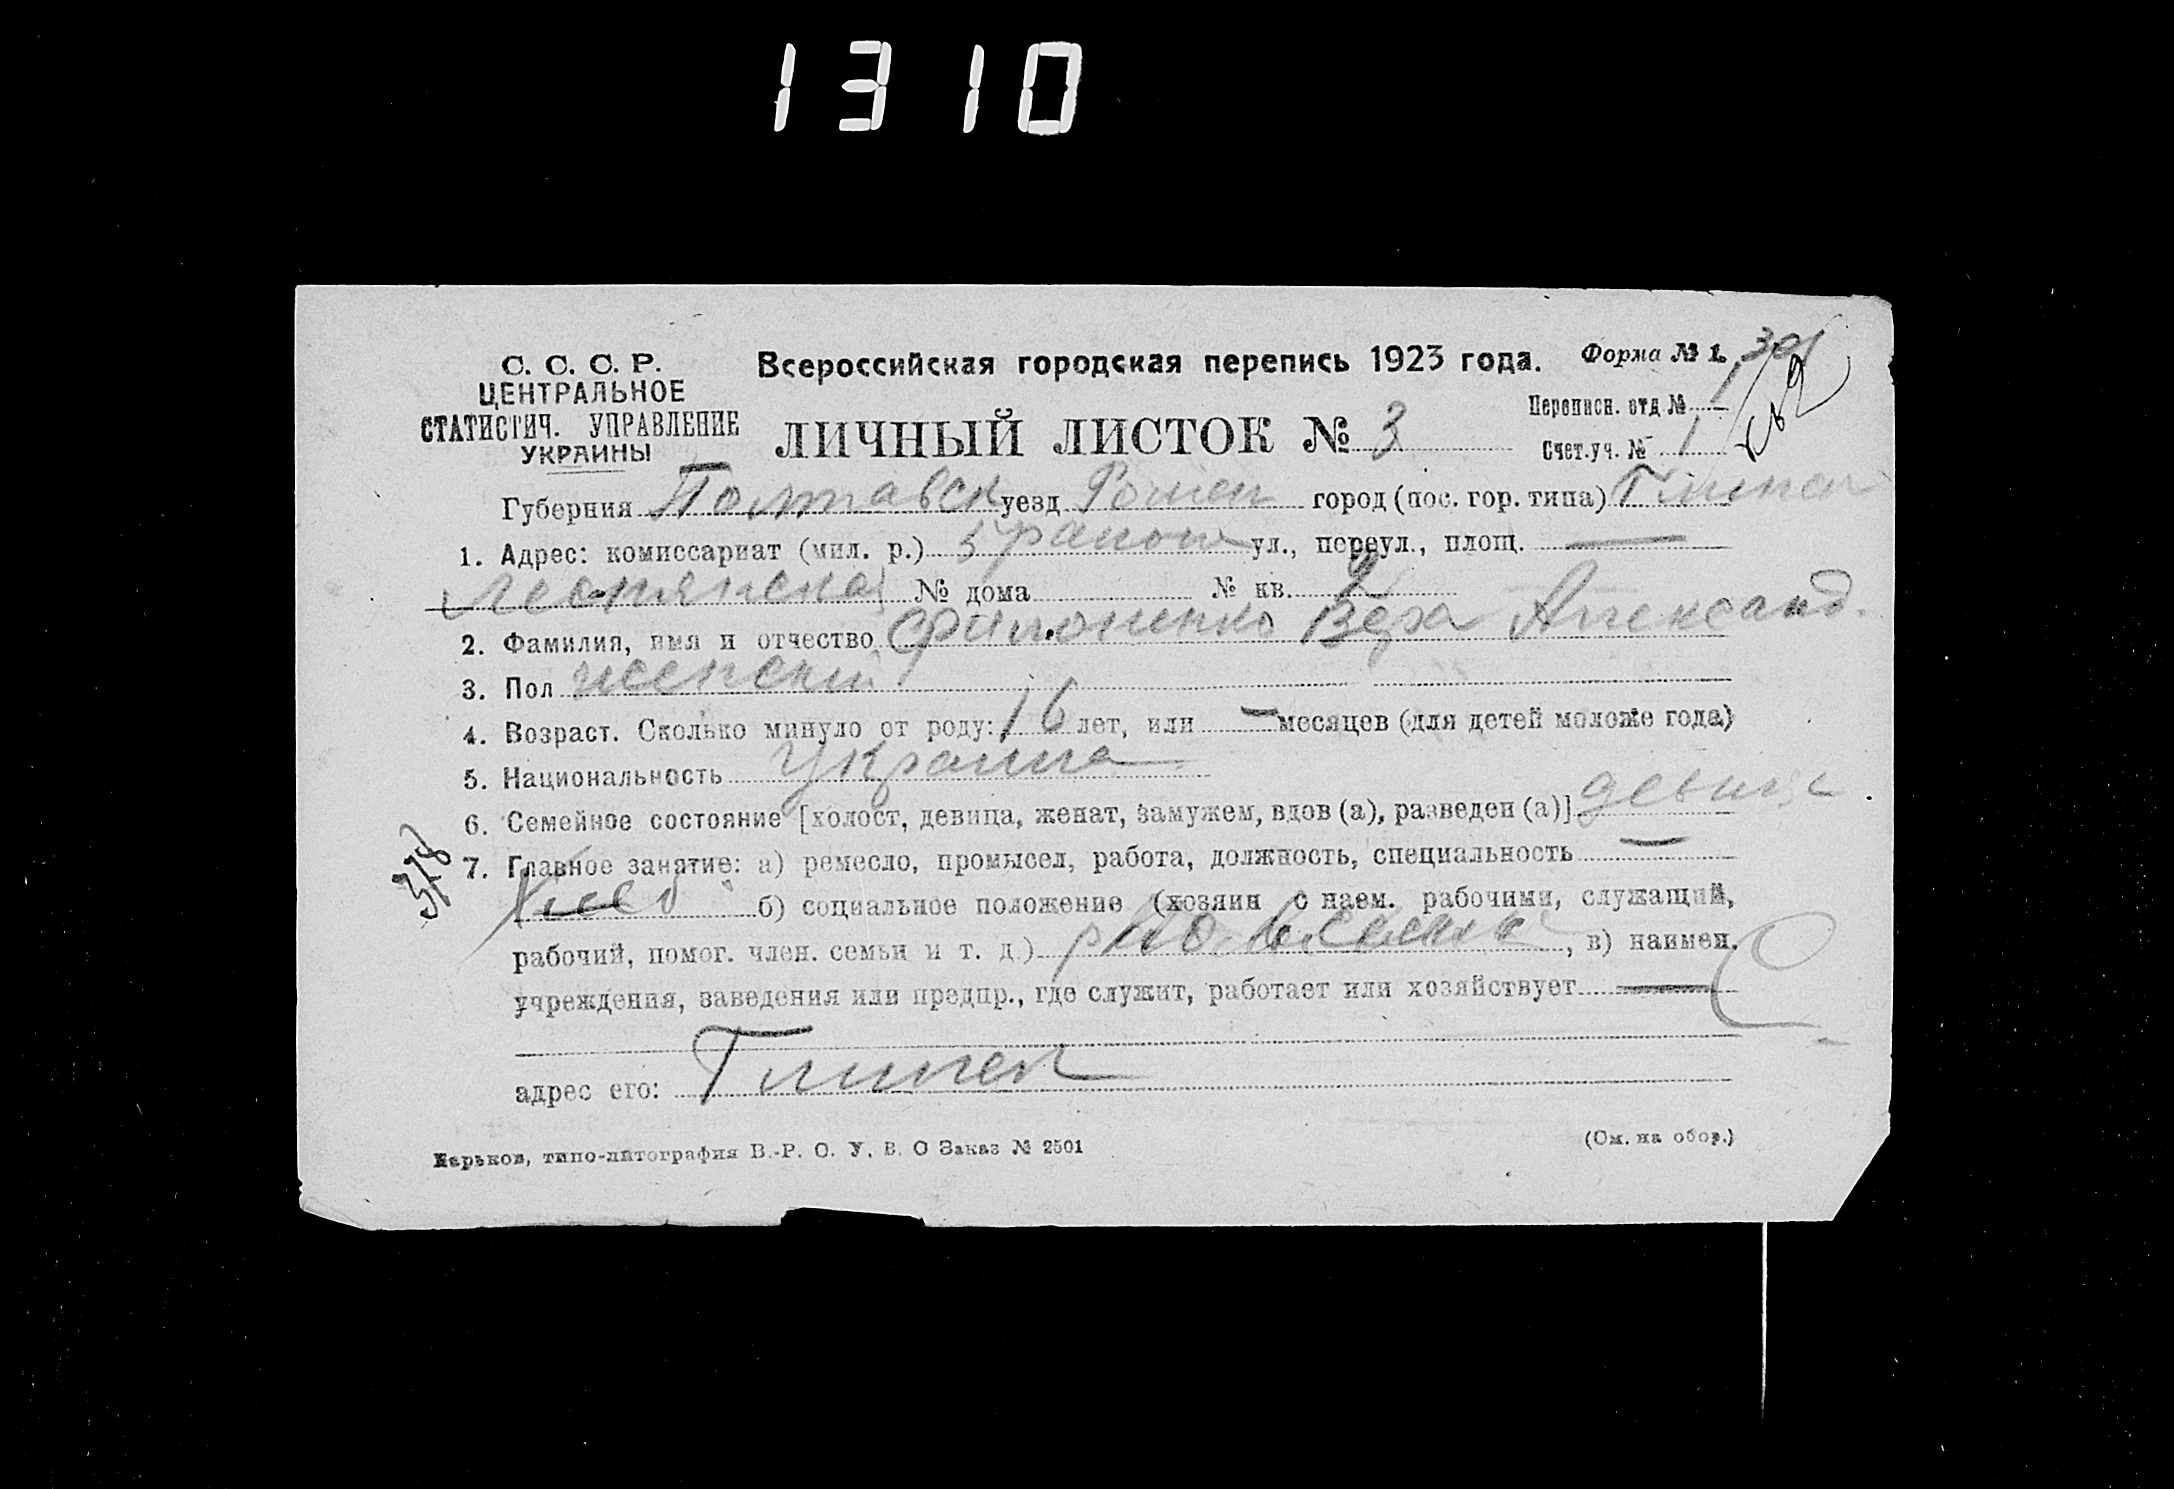 1310
С. С. С. Р.
ЦЕНТРАЛЬНОЕ
СТАТИСТИЧ. УПРАВЛЕНИЕ
УКРАИНЫ
Всероссийская городская перепись 1923 года.
Форма № 1.
ЛИЧНЫЙ ЛИСТОК № 3
Переписн. отд. № 1
Счет. уч. № 1
Губерния Полтавск уезд Ромен город (пос. гор. типа) Глинск
1. Адрес: комиссариат (мил. р.) 5 район ул., переул., площ. —
№ дома № кв.
2. Фамилия, имя и отчество Филоненко Вера Александ.
3. Пол женский
4. Возраст. Сколько минуло от роду: 16 лет, или — месяцев (для детей моложе года)
5. Национальность Украина
6. Семейное состояние [холост, девица, женат, замужем, вдов (а), разведен (а)] девица
7. Главное занятие: а) ремесло, промысел, работа, должность, специальность —
б) социальное положение (хозяин с наем. рабочими, служащий,
рабочий, помог. член. семьи и т. д.) , в) наимен.
учреждения, заведения или предпр., где служит, работает или хозяйствует —
адрес его: Глинск
Харьков, типо-литография В.-Р. О. У. В. О Заказ № 2501
(См. на обор.)